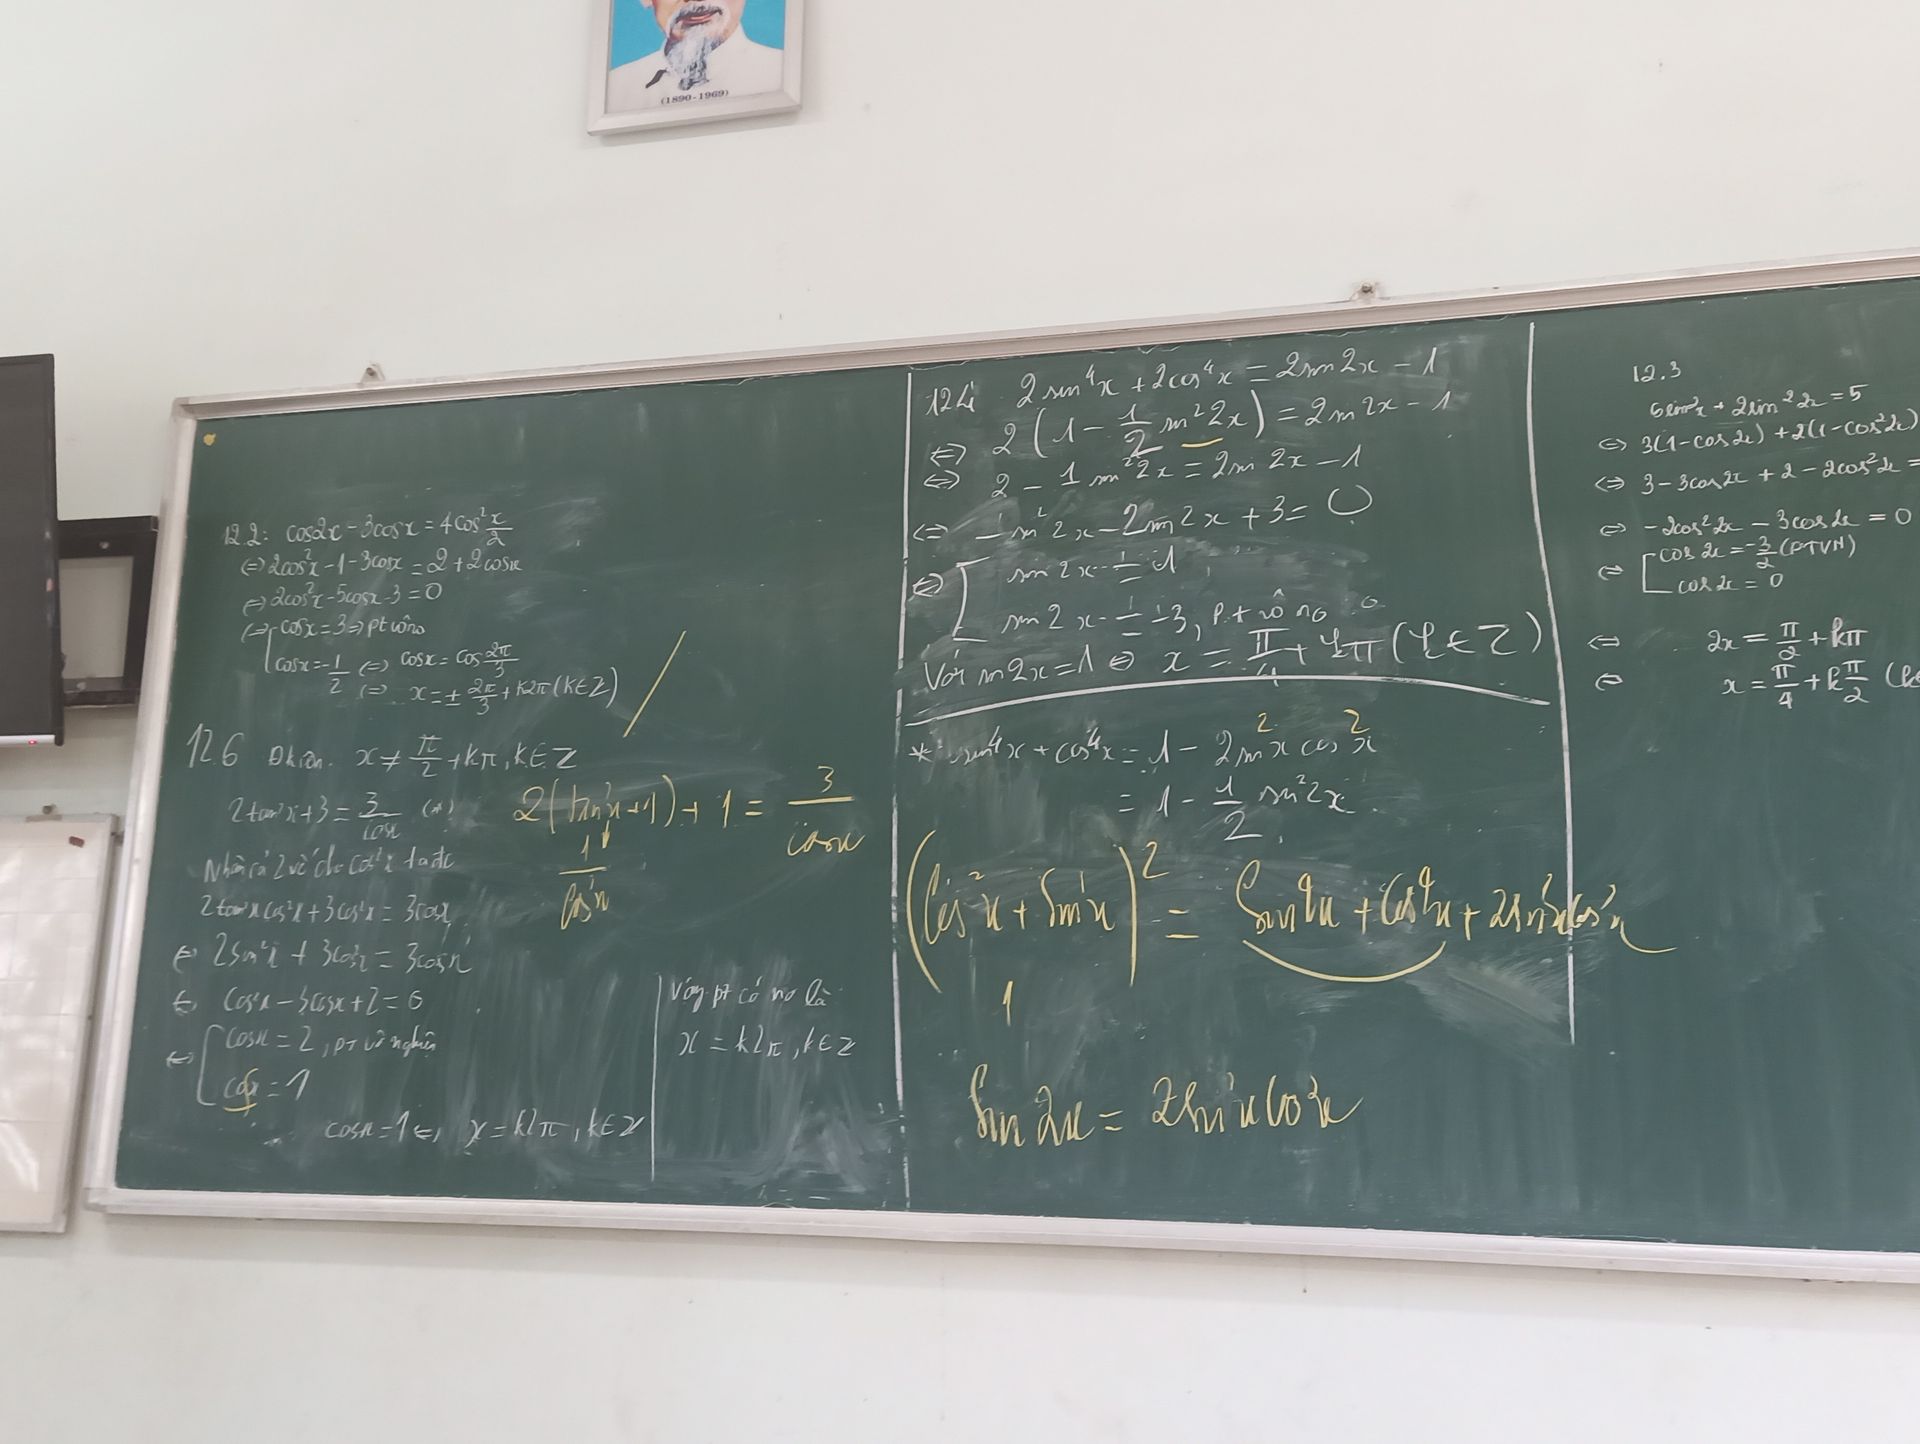 (1890-1969)
12.2: cos2x - 3cosx = 4cos²x/2
⇔ 2cos²x - 1 - 3cosx = 2 + 2cosx
⇔ 2cos²x - 5cosx - 3 = 0
⇔ [ cosx = 3 ⇒ pt vô no
cosx = -1/2 ⇔ cosx = cos 2π/3
⇔ x = ± 2π/3 + k2π (k∈Z)
12.6 Đkiện. x ≠ π/2 + kπ, k∈Z
2tan²x + 3 = 3/cosx (*)
Nhân cả 2 vế cho cos²x ta đc
2tan²x cos²x + 3cos²x = 3cosx
⇔ 2sin²x + 3cos²x = 3cosx
⇔ cos²x - 3cosx + 2 = 0
⇔ [ cosx = 2, PT vô nghiệm
cosx = 1
cosx = 1 ⇔ x = k2π, k∈Z
2(tan²x + 1) + 1 = 3/cosx
1/cos²x
Vậy pt có no là
x = k2π, k∈Z
12.4 2sin⁴x + 2cos⁴x = 2sin2x - 1
⇔ 2(1 - 1/2 sin²2x) = 2sin2x - 1
⇔ 2 - 1sin²2x = 2sin2x - 1
⇔ -sin²2x - 2sin2x + 3 = 0
⇔ [ sin2x = 1
sin2x = -3, pt vô no
Với sin2x = 1 ⇔ x = π/4 + kπ (k∈Z)
* sin⁴x + cos⁴x = 1 - 2sin²x cos²x
= 1 - 1/2 sin²2x
(cos²x + sin²x)² = sin⁴x + cos⁴x + 2sin²xcos²x
1
sin2x = 2sinxcosx
12.3
6sin²x + 2sin²2x = 5
⇔ 3(1-cos2x) + 2(1-cos²2x)
⇔ 3 - 3cos2x + 2 - 2cos²2x =
⇔ -2cos²2x - 3cos2x = 0
⇔ [ cos2x = -3/2 (PTVN)
cos2x = 0
⇔ 2x = π/2 + kπ
⇔ x = π/4 + kπ/2